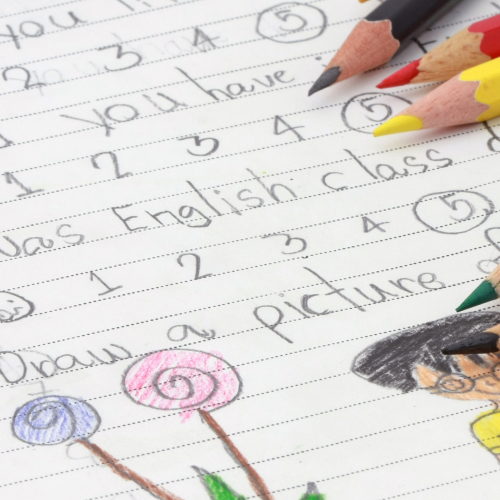 you
2 3 4 5
you have
1 2 3 4 5
was English class
1 2 3 4 5
Draw a picture